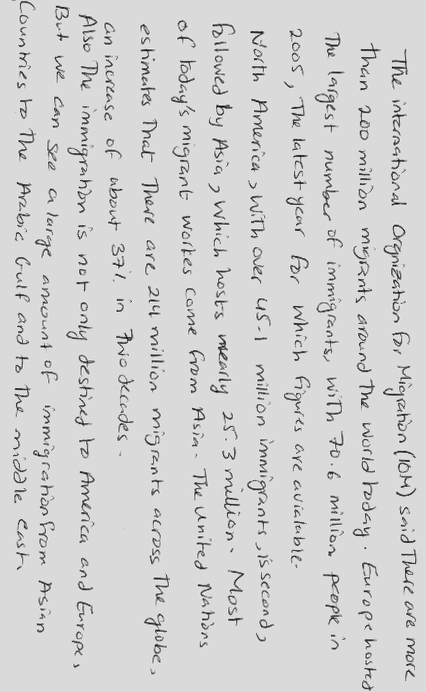 The international Orgnization for Migration (IOM) said There are more
than 200 million migrants around The world today. Europe hosted
The largest number of immigrants, with 70.6 million people in
2005, The latest year for which figures are avialable.
North America, with over 45.1 million immigrants, is second,
followed by Asia, which hosts nearly 25.3 million. Most
of today's migrant workes come from Asia. The united Nations
estimates That There are 214 million migrants across The globe,
an increase of about 37% in Two decades.
Also The immigration is not only destined to America and Europe,
But we can see a large amount of immigration from Asian
Countries to The Arabic Gulf and to The middle east.